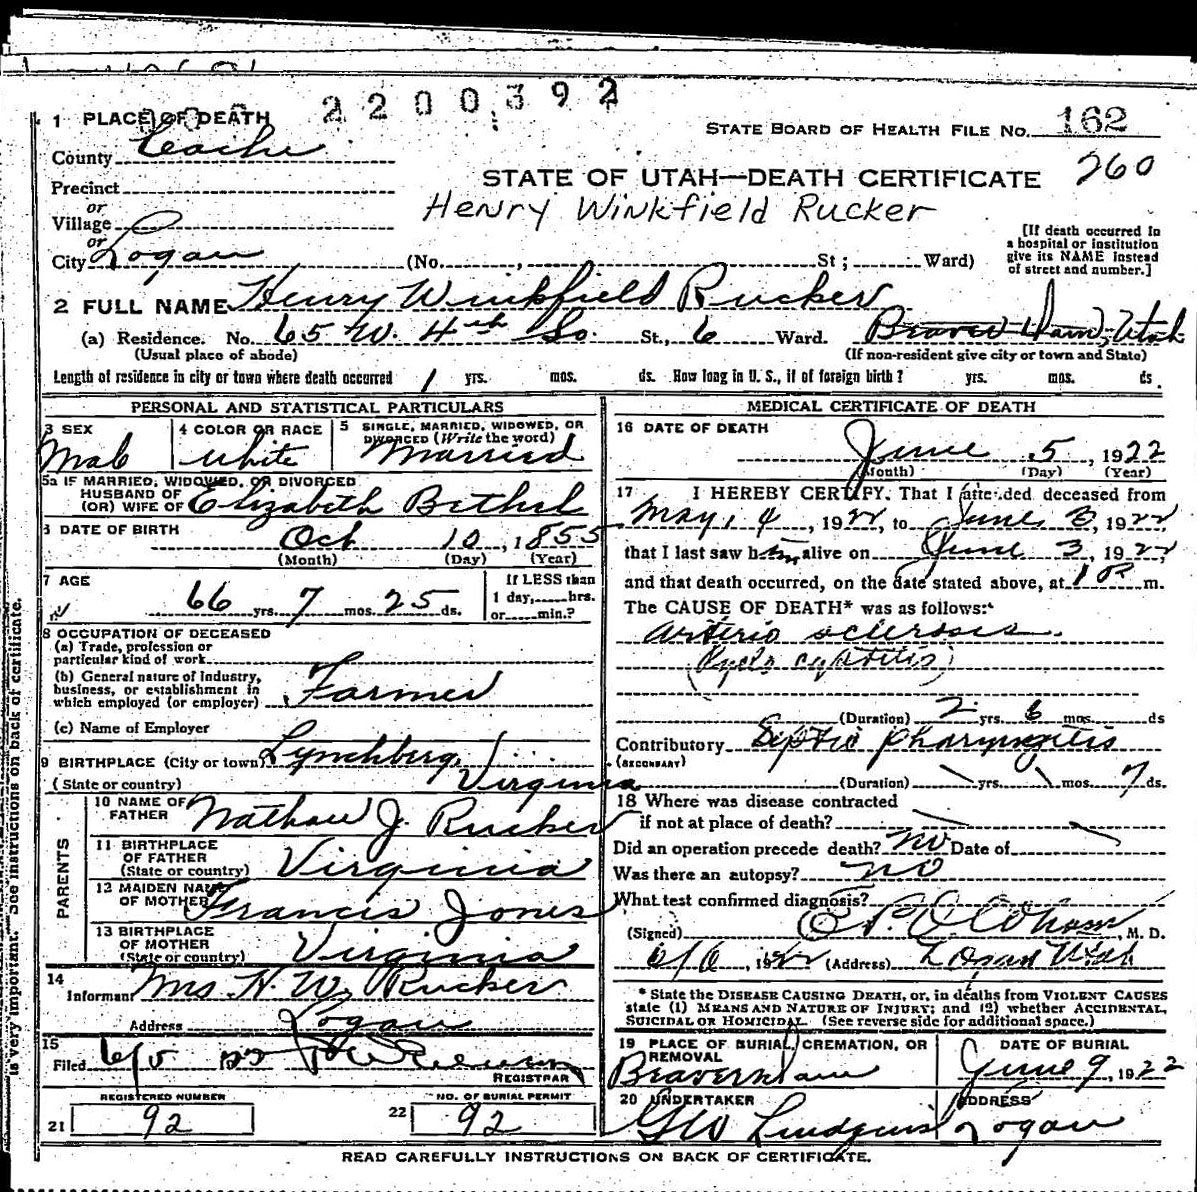 2200392
1 PLACE OF DEATH
STATE BOARD OF HEALTH FILE NO. 162
County Cache
260
Precinct
STATE OF UTAH—DEATH CERTIFICATE
or
Village
Henry Winkfield Rucker
or
City Logan (No. , St; Ward)
[If death occurred in a hospital or institution give its NAME instead of street and number.]
2 FULL NAME Henry Winkfield Rucker
(a) Residence. No. 65 W. 4th So. St., 6 Ward. Beaver Dam, Utah
(Usual place of abode) (If non-resident give city or town and State)
Length of residence in city or town where death occurred 1 yrs. mos. ds. How long in U. S., if of foreign birth? yrs. mos. ds.
PERSONAL AND STATISTICAL PARTICULARS
3 SEX
Male
4 COLOR OR RACE
white
5 SINGLE, MARRIED, WIDOWED, OR DIVORCED (Write the word)
Married
5a IF MARRIED, WIDOWED, OR DIVORCED
HUSBAND OF
(OR) WIFE OF Elizabeth Bethel
6 DATE OF BIRTH
Oct 10, 1855
(Month) (Day) (Year)
7 AGE
66 yrs. 7 mos. 25 ds.
If LESS than
1 day,......hrs.
or......min.?
8 OCCUPATION OF DECEASED
(a) Trade, profession or
particular kind of work
(b) General nature of Industry,
business, or establishment in
which employed (or employer) Farmer
(c) Name of Employer
9 BIRTHPLACE (City or town) Lynchberg,
(State or country) Virginia
PARENTS
10 NAME OF
FATHER Nathan J. Rucker
11 BIRTHPLACE
OF FATHER
(State or country) Virginia
12 MAIDEN NAME
OF MOTHER Francis Jones
13 BIRTHPLACE
OF MOTHER
(State or country) Virginia
14
Informant Mrs H. W. Rucker
Address Logan
15
Filed
REGISTRAR
REGISTERED NUMBER
21 92
NO. OF BURIAL PERMIT
22 92
MEDICAL CERTIFICATE OF DEATH
16 DATE OF DEATH
June 5, 1922
(Month) (Day) (Year)
17 I HEREBY CERTIFY. That I attended deceased from
May, 4, 1922, to June 3, 1922
that I last saw him alive on June 3, 1922
and that death occurred, on the date stated above, at m.
The CAUSE OF DEATH* was as follows:
Arterio sclerosis.
(Pyelo cystitis)
(Duration) 2 yrs. 6 mos. ds
Contributory Septic pharyngitis
(SECONDARY)
(Duration) yrs. mos. 7 ds.
18 Where was disease contracted
if not at place of death?
Did an operation precede death? no Date of
Was there an autopsy? no
What test confirmed diagnosis?
(Signed) , M. D.
6/6, 1922 (Address) Logan Utah
* State the DISEASE CAUSING DEATH, or, in deaths from VIOLENT CAUSES
state (1) MEANS AND NATURE OF INJURY; and (2) whether ACCIDENTAL,
SUICIDAL OR HOMICIDAL. (See reverse side for additional space.)
19 PLACE OF BURIAL, CREMATION, OR
REMOVAL
Beaverdam
DATE OF BURIAL
June 9, 1922
20 UNDERTAKER
GW Lindquist
ADDRESS
Logan
READ CAREFULLY INSTRUCTIONS ON BACK OF CERTIFICATE.
is very important. See instructions on back of certificate.